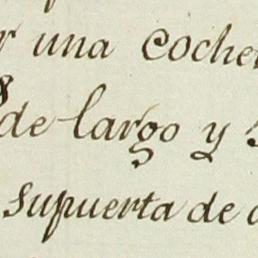 una coche
de largo y
supuerta de